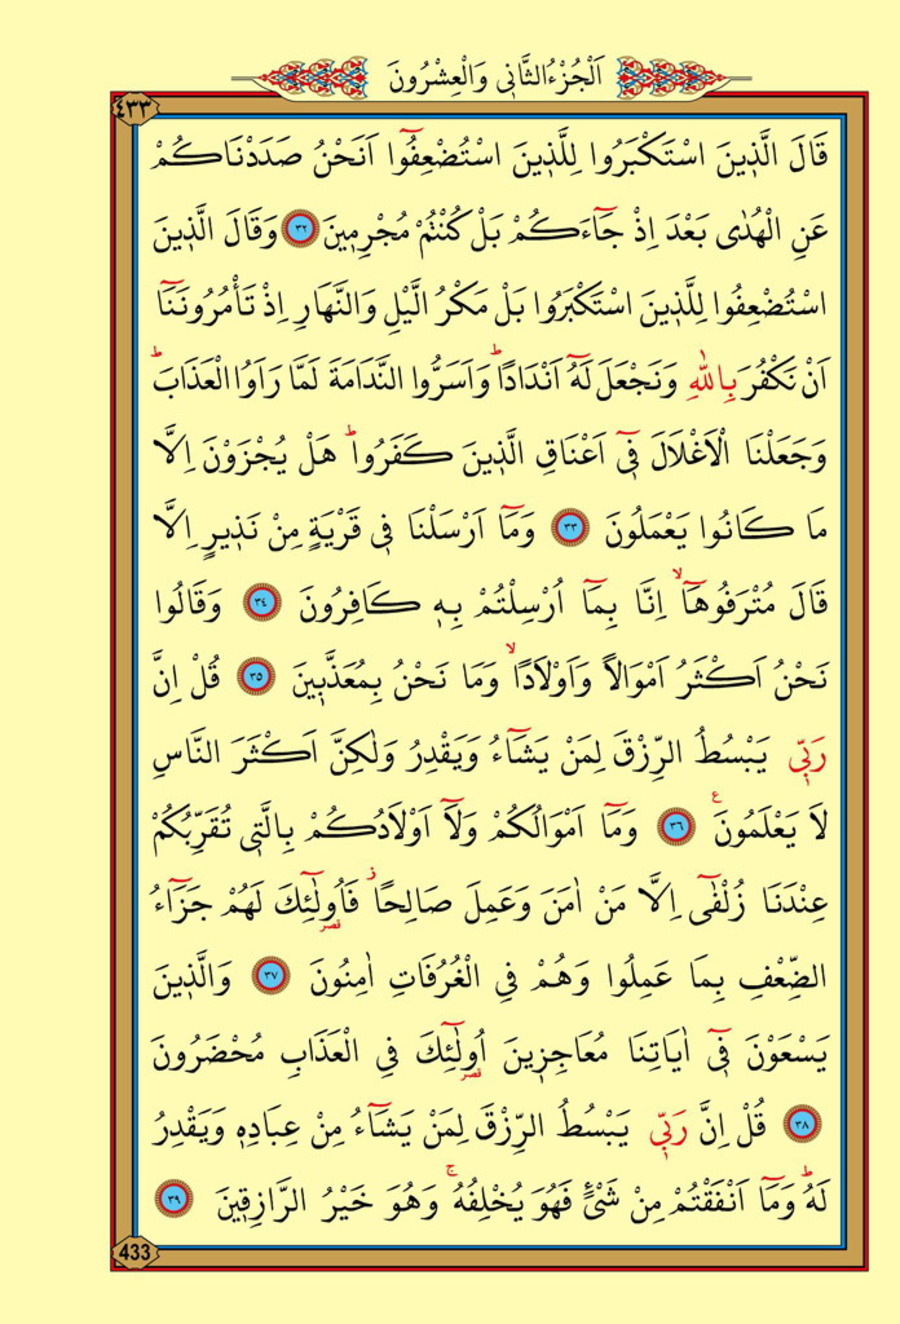 اَلْجُزْءُ الثَّانٖى وَالْعِشْرُونَ
٤٣٣
قَالَ الَّذٖينَ اسْتَكْبَرُوا لِلَّذٖينَ اسْتُضْعِفُٓوا اَنَحْنُ صَدَدْنَاكُمْ
عَنِ الْهُدٰى بَعْدَ اِذْ جَٓاءَكُمْ بَلْ كُنْتُمْ مُجْرِمٖينَ ٣٢ وَقَالَ الَّذٖينَ
اسْتُضْعِفُوا لِلَّذٖينَ اسْتَكْبَرُوا بَلْ مَكْرُ الَّيْلِ وَالنَّهَارِ اِذْ تَأْمُرُونَنَٓا
اَنْ نَكْفُرَ بِاللّٰهِ وَنَجْعَلَ لَهُٓ اَنْدَادًاؕ وَاَسَرُّوا النَّدَامَةَ لَمَّا رَاَوُا الْعَذَابَؕ
وَجَعَلْنَا الْاَغْلَالَ فٖٓى اَعْنَاقِ الَّذٖينَ كَفَرُواؕ هَلْ يُجْزَوْنَ اِلَّا
مَا كَانُوا يَعْمَلُونَ ٣٣ وَمَٓا اَرْسَلْنَا فٖى قَرْيَةٍ مِنْ نَذٖيرٍ اِلَّا
قَالَ مُتْرَفُوهَٓاۙ اِنَّا بِمَٓا اُرْسِلْتُمْ بِهٖ كَافِرُونَ ٣٤ وَقَالُوا
نَحْنُ اَكْثَرُ اَمْوَالًا وَاَوْلَادًاۙ وَمَا نَحْنُ بِمُعَذَّبٖينَ ٣٥ قُلْ اِنَّ
رَبّٖى يَبْسُطُ الرِّزْقَ لِمَنْ يَشَٓاءُ وَيَقْدِرُ وَلٰكِنَّ اَكْثَرَ النَّاسِ
لَا يَعْلَمُونَ ع ٣٦ وَمَٓا اَمْوَالُكُمْ وَلَٓا اَوْلَادُكُمْ بِالَّتٖى تُقَرِّبُكُمْ
عِنْدَنَا زُلْفٰٓى اِلَّا مَنْ اٰمَنَ وَعَمِلَ صَالِحًاؗ فَاُولٰٓئِكَ قصر لَهُمْ جَزَٓاءُ
الضِّعْفِ بِمَا عَمِلُوا وَهُمْ فِى الْغُرُفَاتِ اٰمِنُونَ ٣٧ وَالَّذٖينَ
يَسْعَوْنَ فٖٓى اٰيَاتِنَا مُعَاجِزٖينَ اُولٰٓئِكَ قصر فِى الْعَذَابِ مُحْضَرُونَ
٣٨ قُلْ اِنَّ رَبّٖى يَبْسُطُ الرِّزْقَ لِمَنْ يَشَٓاءُ مِنْ عِبَادِهٖ وَيَقْدِرُ
لَهُؕ وَمَٓا اَنْفَقْتُمْ مِنْ شَیْءٍ فَهُوَ يُخْلِفُهُۚ وَهُوَ خَيْرُ الرَّازِقٖينَ ٣٩
433